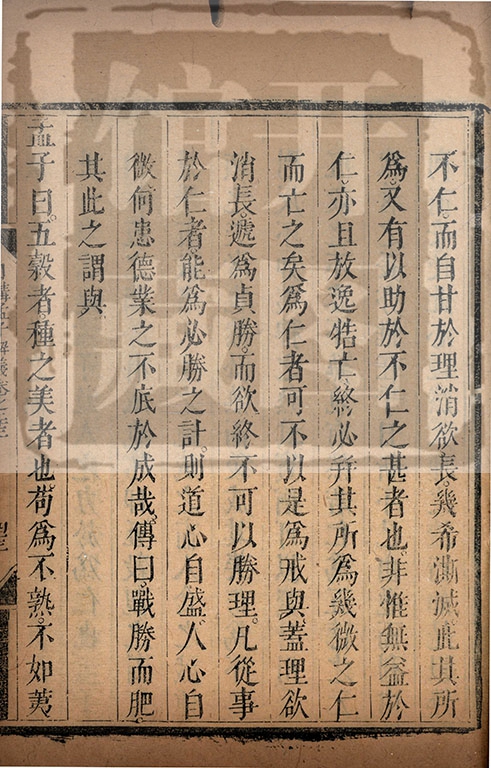 不仁。而自甘於理消欲長。幾希澌滅。此其所
爲。又有以助於不仁之甚者也。非惟無益於
仁。亦且放逸牿亡。終必幷其所爲幾微之仁
而亡之矣。爲仁者可不以是爲戒與。蓋理欲
消長。遞爲貞勝。而欲終不可以勝理。凡從事
於仁者能爲必勝之計。則道心自盛。人心自
微。何患德業之不底於成哉。傳曰。戰勝而肥
其此之謂與
孟子曰。五穀者。種之美者也。苟爲不熟。不如荑